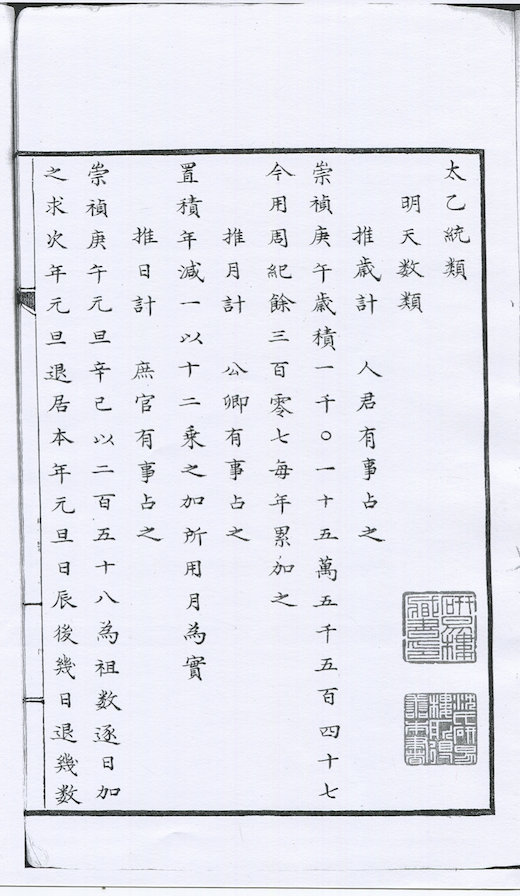 太乙統類
明天数類
推歳計　人君有事占之
崇禎庚午歳積一千〇一十五萬五千五百四十七
今用周紀餘三百零七每年累加之
推月計　公卿有事占之
置積年減一以十二乘之加所用月為實
推日計　庶官有事占之
崇禎庚午元旦辛巳以二百五十八為祖数逐日加
之求次年元旦退居本年元旦日辰後幾日退幾数